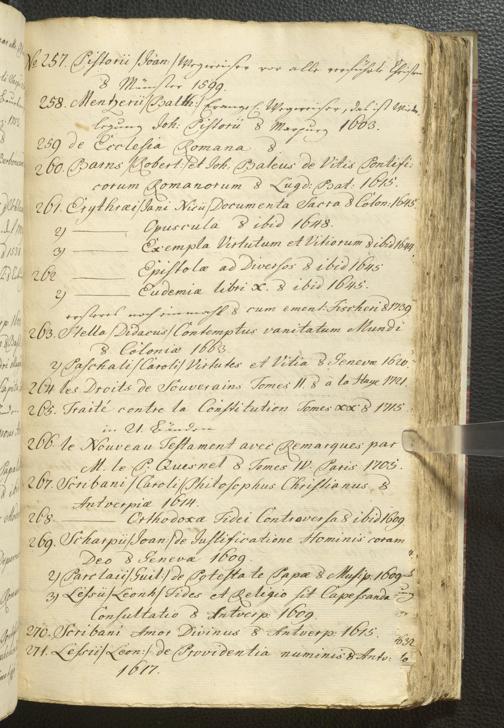 No 257. Pistorii /Joan:/ Wegweiser vor alle verführte Christen
8 Münster 1599.
258. Mentzerii /Balth:/ Evangel. Wegweiser, das ist Wider
legung Joh: Pistorii 8 Marpurg 1603.
259 de Ecclesia Romana 8
260. Barns /Robert:/ et Joh. Baleus de Vitis Pontifi
corum Romanorum 8 Lugd: Bat: 1615.
261. Erythraei /Jani Nicii/ Documenta Sacra 8 Colon: 1645
2) ——— Opuscula 8 ibid 1648.
3) ——— Exempla Virtutum et Vitiorum 8 ibid 1644
262 ——— Epistolae ad Diversos 8 ibid 1645
2) ——— Eudemiae libri X. 8 ibid 1645.
noch einmahl 8 cum emend: Fischeri 8 1739
263. Stella /Didacus/ Contemptus vanitatum Mundi
8 Coloniae 1663.
2) Paschali /Caroli/ Virtutes et Vitia 8 Genevae 1620
264 les Droits de Souverains Tomes II. 8 à la Haye 1721.
265. Traité contre la Constitution Tomes XX 8 1715
in 21. Bänden
266. le Nouveau Testament avec Remarques par
M. le P. Quesnel 8 Tomes IV. Paris 1705.
267. Scribani /Caroli/ Philosophus Christianus 8
Antverpiae 1614.
268. ——— Orthodoxae Fidei Controversa 8 ibid 1609
269. Scharpii /Joan/ de Justificatione Hominis coram
Deo 8 Genevae 1609
2) Barclaii /Guil:/ de Potestate Papae 8 Mussip. 1609
3) Lessii /Leonh/ Fides et Religio sit Capessenda
Consultatio 8 Antverp 1609
270. Scribani Amor Divinus 8 Antverp: 1615.
271. Lessii /Leon:/ de Providentia numinis 8 Antv:
1617.